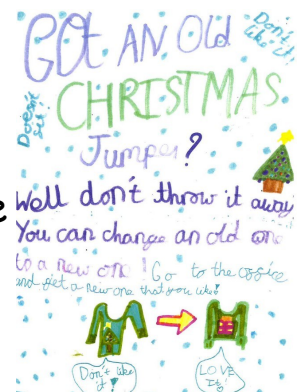 GOt AN Old
Don't like it!
CHRISTMAS
Doesn't
Jumper?
Well don't throw it away
You can change an old one
to a new one! Go to the office
and get a new one that you like!
Don't like it!
LOVE it!